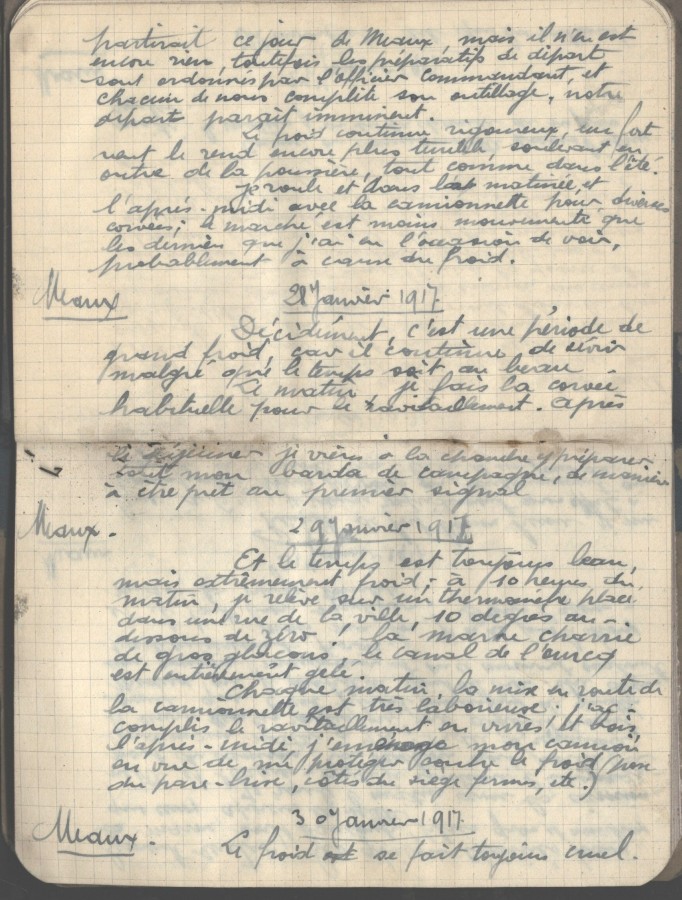 partirait ce jour de Meaux mais il n'en est
encore rien, toutefois les préparatifs de départ
sont ordonnés par l'officier commandant, et
chacun de nous complète son outillage, notre
départ paraît imminent.
Le froid continue rigoureux, un fort
vent le rend encore plus terrible soulevant en
outre de la poussière, tout comme dans l'été.
Je roule et dans la matinée, et
l'après-midi avec la camionnette pour diverses
corvées; le marché est moins mouvementé que
les derniers que j'ai eu l'occasion de voir,
probablement à cause du froid.
Meaux
28 Janvier 1917
Décidément, c'est une période de
grand froid, car il continue de sévir
malgré que le temps soit au beau.
Le matin je fais la corvée
habituelle pour le ravitaillement. Après
le déjeuner je viens à la chambre y préparer
tout mon barda de campagne, de manière
à être prêt au premier signal
Meaux.
29 Janvier 1917
Et le temps est toujours beau,
mais extrêmement froid; à 10 heures du
matin, je relève sur un thermomètre placé
dans une rue de la ville, 10 degrés au-
dessous de zéro! la Marne charrie
de gros glaçons, le canal de l'Ourcq
est entièrement gelé.
Chaque matin, la mise en route de
la camionnette est très laborieuse. j'ac-
complis le ravitaillement en vivres et bois,
l'après-midi, j'aménage mon camion
en vue de me protéger contre le froid (pose
du pare-brise, côtés du siège fermés, etc.)
Meaux.
30 Janvier 1917
Le froid se fait toujours cruel.